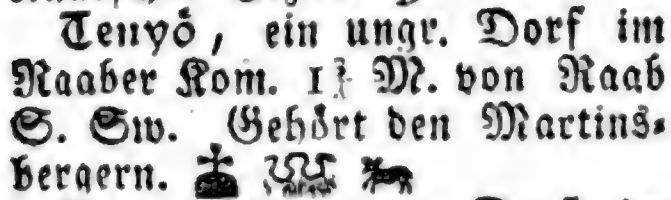 Tenyö, ein ungr. Dorf im
Raaber Kom. 1 M. von Raab
S. Sw. Gehört den Martins-
bergern.